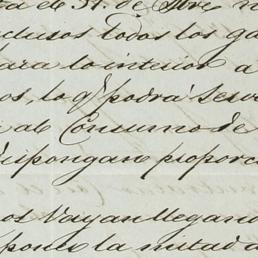 ta el 31. de
clusos todos los ga
para lo interior a
os, lo q.e podrá serv
al Consumo de
dispongan proporc
os vayan llegano
pones la mitad a